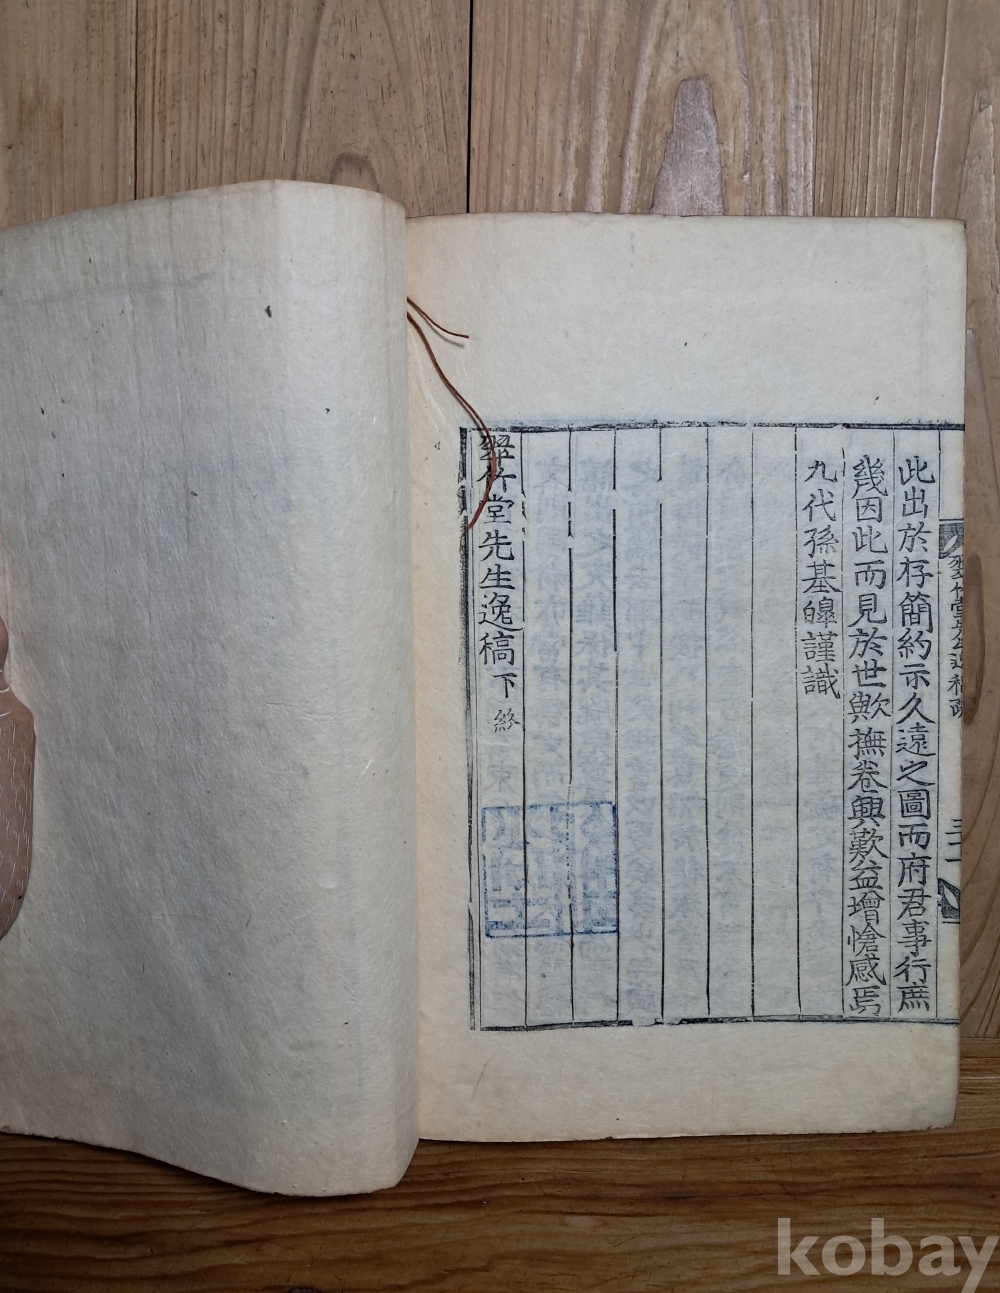 此出於存簡約示久遠之圖而府君事行庶
幾因此而見於世歟撫卷興歎益增愴感焉
九代孫基皥謹識
翠竹堂先生逸稿下 終
翠竹堂先生逸稿
kobay